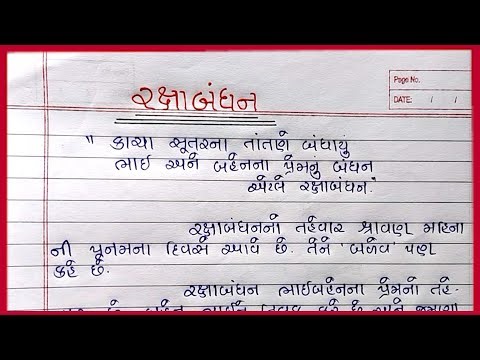 Page No.
DATE: / /
રક્ષાબંધન
" કાચા સૂતરના તાંતણે બંધાયું
ભાઈ અને બહેનના પ્રેમનું બંધન
એટલે રક્ષાબંધન."
રક્ષાબંધનનો તહેવાર શ્રાવણ મહિના
ની પૂનમના દિવસે આવે છે. તેને 'બળેવ' પણ
કહે છે.
રક્ષાબંધન ભાઈબહેનના પ્રેમનો તહે-